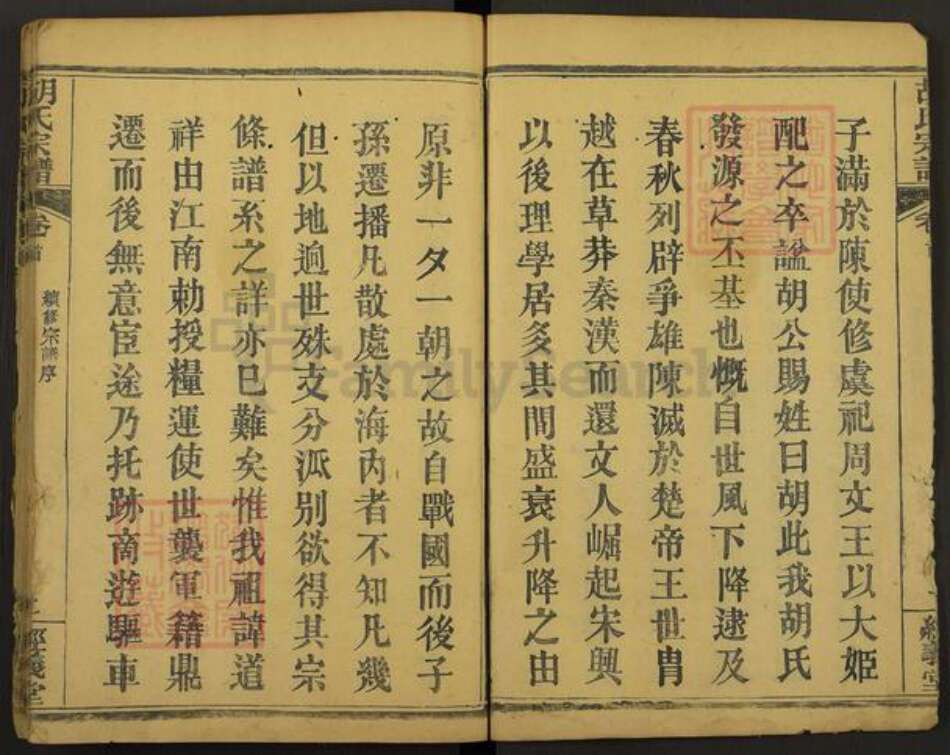 子滿於陳使修虞祀周文王以大姬
配之卒諡胡公賜姓曰胡此我胡氏
發源之丕基也慨自世風下降逮及
春秋列辟爭雄陳滅於楚帝王世胄
越在草莽秦漢而還文人崛起宋興
以後理學居多其間盛衰升降之由
原非一夕一朝之故自戰國而後子
孫遷播凡散處於海內者不知凡幾
但以地迥世殊支分派別欲得其宗
條譜系之詳亦已難矣惟我祖諱道
祥由江南勅授糧運使世襲軍籍鼎
遷而後無意宦途乃托跡商遊驅車
胡氏宗譜 卷首 續修宗譜序 經義堂
FamilySearch